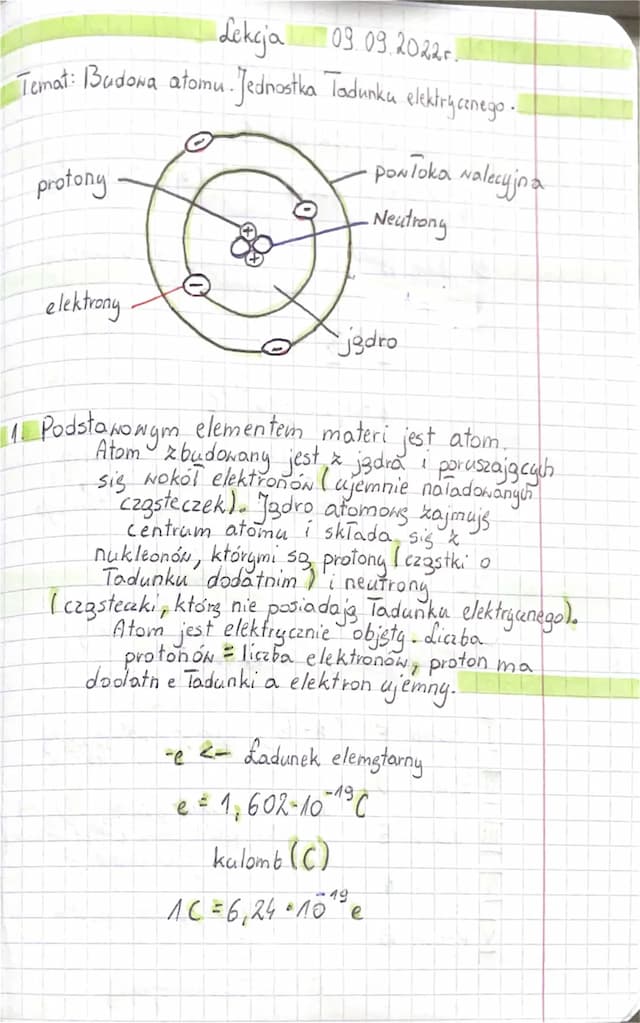 Lekcja 09.09.2022r.
Temat: Budowa atomu. Jednostka Ładunku elektrycznego.
protony
powłoka walecyjna
Neutrony
elektrony
jądro
1. Podstawowym elementem materi jest atom.
Atom zbudowany jest z jądra i poruszających
się wokół elektronów (ujemnie naładowanych
cząsteczek). Jądro atomowę zajmuję
centrum atomu i składa się z
nukleonów, którymi są protony (cząstki o
Ładunku dodatnim) i neutrony
(cząsteczki, którę nie posiadają Ładunku elektrycznego).
Atom jest elektrycznie objęty. Liczba
protonów = liczba elektronów, proton ma
dodatn e Ładunki a elektron ujemny.
-e <- Ładunek elemętarny
e = 1,602·10⁻¹⁹ C
kulomb (C)
1C = 6,24·10⁻¹⁹ e